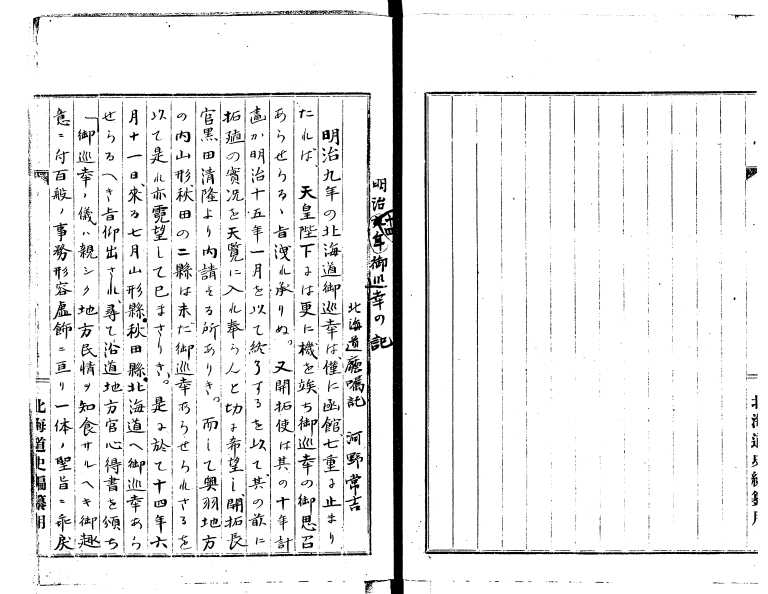 明治十四年御巡幸の記
北海道廳嘱託 河野常吉
明治九年の北海道御巡幸は僅に函館七重に止まり
たれば、天皇陛下には更に機を竢ち御巡幸の御思召
あらせらるゝ旨洩れ承りぬ。又開拓使は其の十年計
畫が明治十五年一月を以て終了するを以て、其の前に
拓殖の實况を天覧に入れ奉らんと切に希望し、開拓長
官黒田清隆より内請する所ありき。而して奥羽地方
の内山形秋田の二縣は未だ御巡幸あらせられざるを
以て是れ亦霓望して已まざりき。是に於て十四年六
月十一日、來る七月山形縣、秋田縣、北海道へ御巡幸あら
せらるへき旨仰出され、尋て沿道地方官心得書を頒ち
「御巡幸ノ儀ハ親シク地方民情ヲ知食サルヘキ御趣
意ニ付百般ノ事務形容虚飾ニ亘リ一体ノ聖旨ニ乖戻
北海道史編纂用
北海道史編纂用